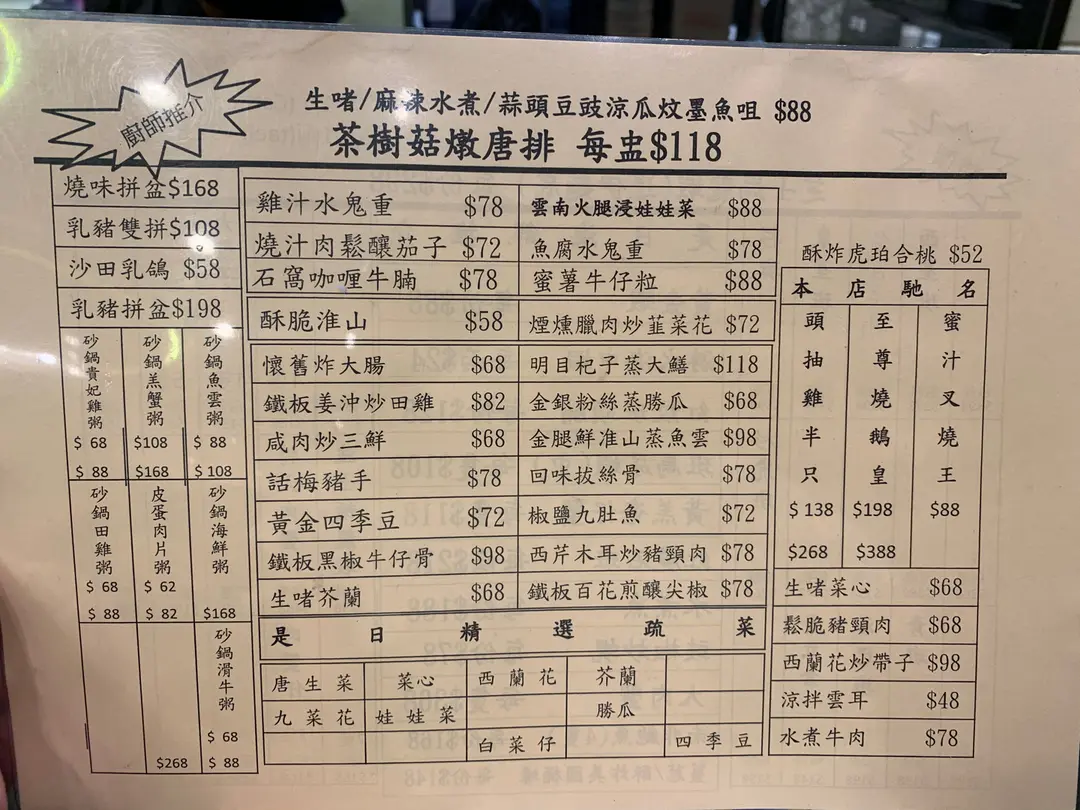 廚師推介
生啫/麻辣水煮/蒜頭豆豉涼瓜炆墨魚咀 $88
茶樹菇燉唐排 每盅$118
燒味拼盆$168
乳豬雙拼$108
沙田乳鴿 $58
乳豬拼盆$198
砂鍋貴妃雞粥 $68 $88
砂鍋羔蟹粥 $108 $168
砂鍋魚雲粥 $88 $108
砂鍋田雞粥 $68 $88
皮蛋肉片粥 $62 $82
砂鍋海鮮粥 $168
$268
砂鍋滑牛粥 $68 $88
雞汁水鬼重 $78
燒汁肉鬆釀茄子 $72
石窩咖喱牛腩 $78
酥脆淮山 $58
懷舊炸大腸 $68
鐵板姜沖炒田雞 $82
咸肉炒三鮮 $68
話梅豬手 $78
黃金四季豆 $72
鐵板黑椒牛仔骨 $98
生啫芥蘭 $68
雲南火腿浸娃娃菜 $88
魚腐水鬼重 $78
蜜薯牛仔粒 $88
煙燻臘肉炒韮菜花 $72
明目杞子蒸大鱔 $118
金銀粉絲蒸勝瓜 $68
金腿鮮准山蒸魚雲 $98
回味拔絲骨 $78
椒鹽九肚魚 $72
西芹木耳炒豬頸肉 $78
鐵板百花煎釀尖椒 $78
是日精選疏菜
唐生菜 菜心 西蘭花 芥蘭
九菜花 娃娃菜 勝瓜
白菜仔 四季豆
酥炸虎珀合桃 $52
本店馳名
頭抽雞半只 $138 $268
至尊燒鵝皇 $198 $388
蜜汁叉燒王 $88
生啫菜心 $68
鬆脆豬頸肉 $68
西蘭花炒帶子 $98
涼拌雲耳 $48
水煮牛肉 $78